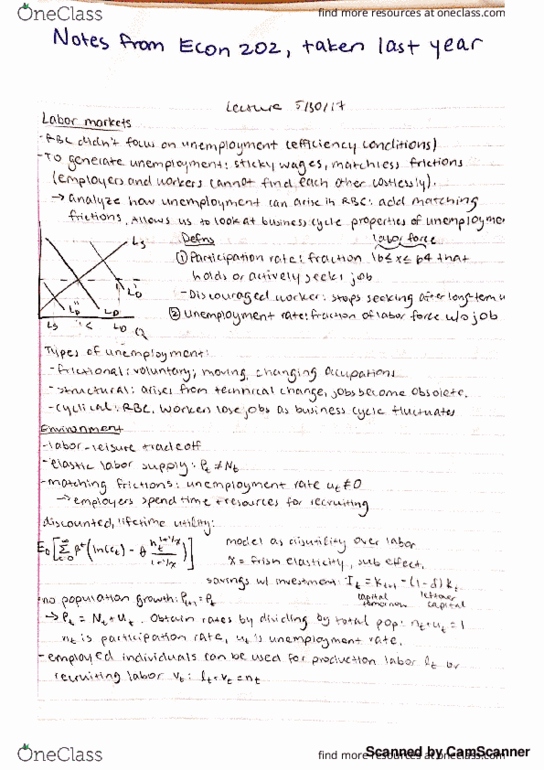 OneClass
find more resources at oneclass.com
Notes from Econ 202, taken last year
Lecture 5/30/17
Labor markets
- RBC didn't focus on unemployment (efficiency conditions)
- To generate unemployment: sticky wages, matchless frictions
(employers and workers cannot find each other costlessly).
→ analyze how unemployment can arise in RBC: add matching
frictions. Allows us to look at business cycle properties of unemploymen
Ls
Defns
labor force
① Participation rate: fraction 16 ≤ x ≤ 64 that
holds or actively seeks job
LD
- Discouraged worker: stops seeking after long-term u
② Unemployment rate: fraction of labor force w/o job
LD
Types of unemployment:
- frictional: voluntary; moving, changing occupations
- structural: arises from technical change, jobs become obsolete.
- cyclical: RBC. Workers lose jobs as business cycle fluctuates
Environment
- labor-leisure tradeoff
- elastic labor supply: Pt ≠ Nt
- matching frictions: unemployment rate ut ≠ 0
→ employers spend time + resources for recruiting
discounted, lifetime utility:
model as disutility over labor
x = frish elasticity, sub effect.
savings w/ investment: It = kt+1 - (1-δ)kt
capital tomorrow
leftover capital
no population growth: Pt+1 = Pt
→ Pt = Nt + Ut. Obtain rates by dividing by total pop: nt + ut = 1
nt is participation rate, ut is unemployment rate.
- employed individuals can be used for production labor lt or
recruiting labor vt: lt + vt = nt
OneClass
find more resources at oneclass.com
Scanned by CamScanner